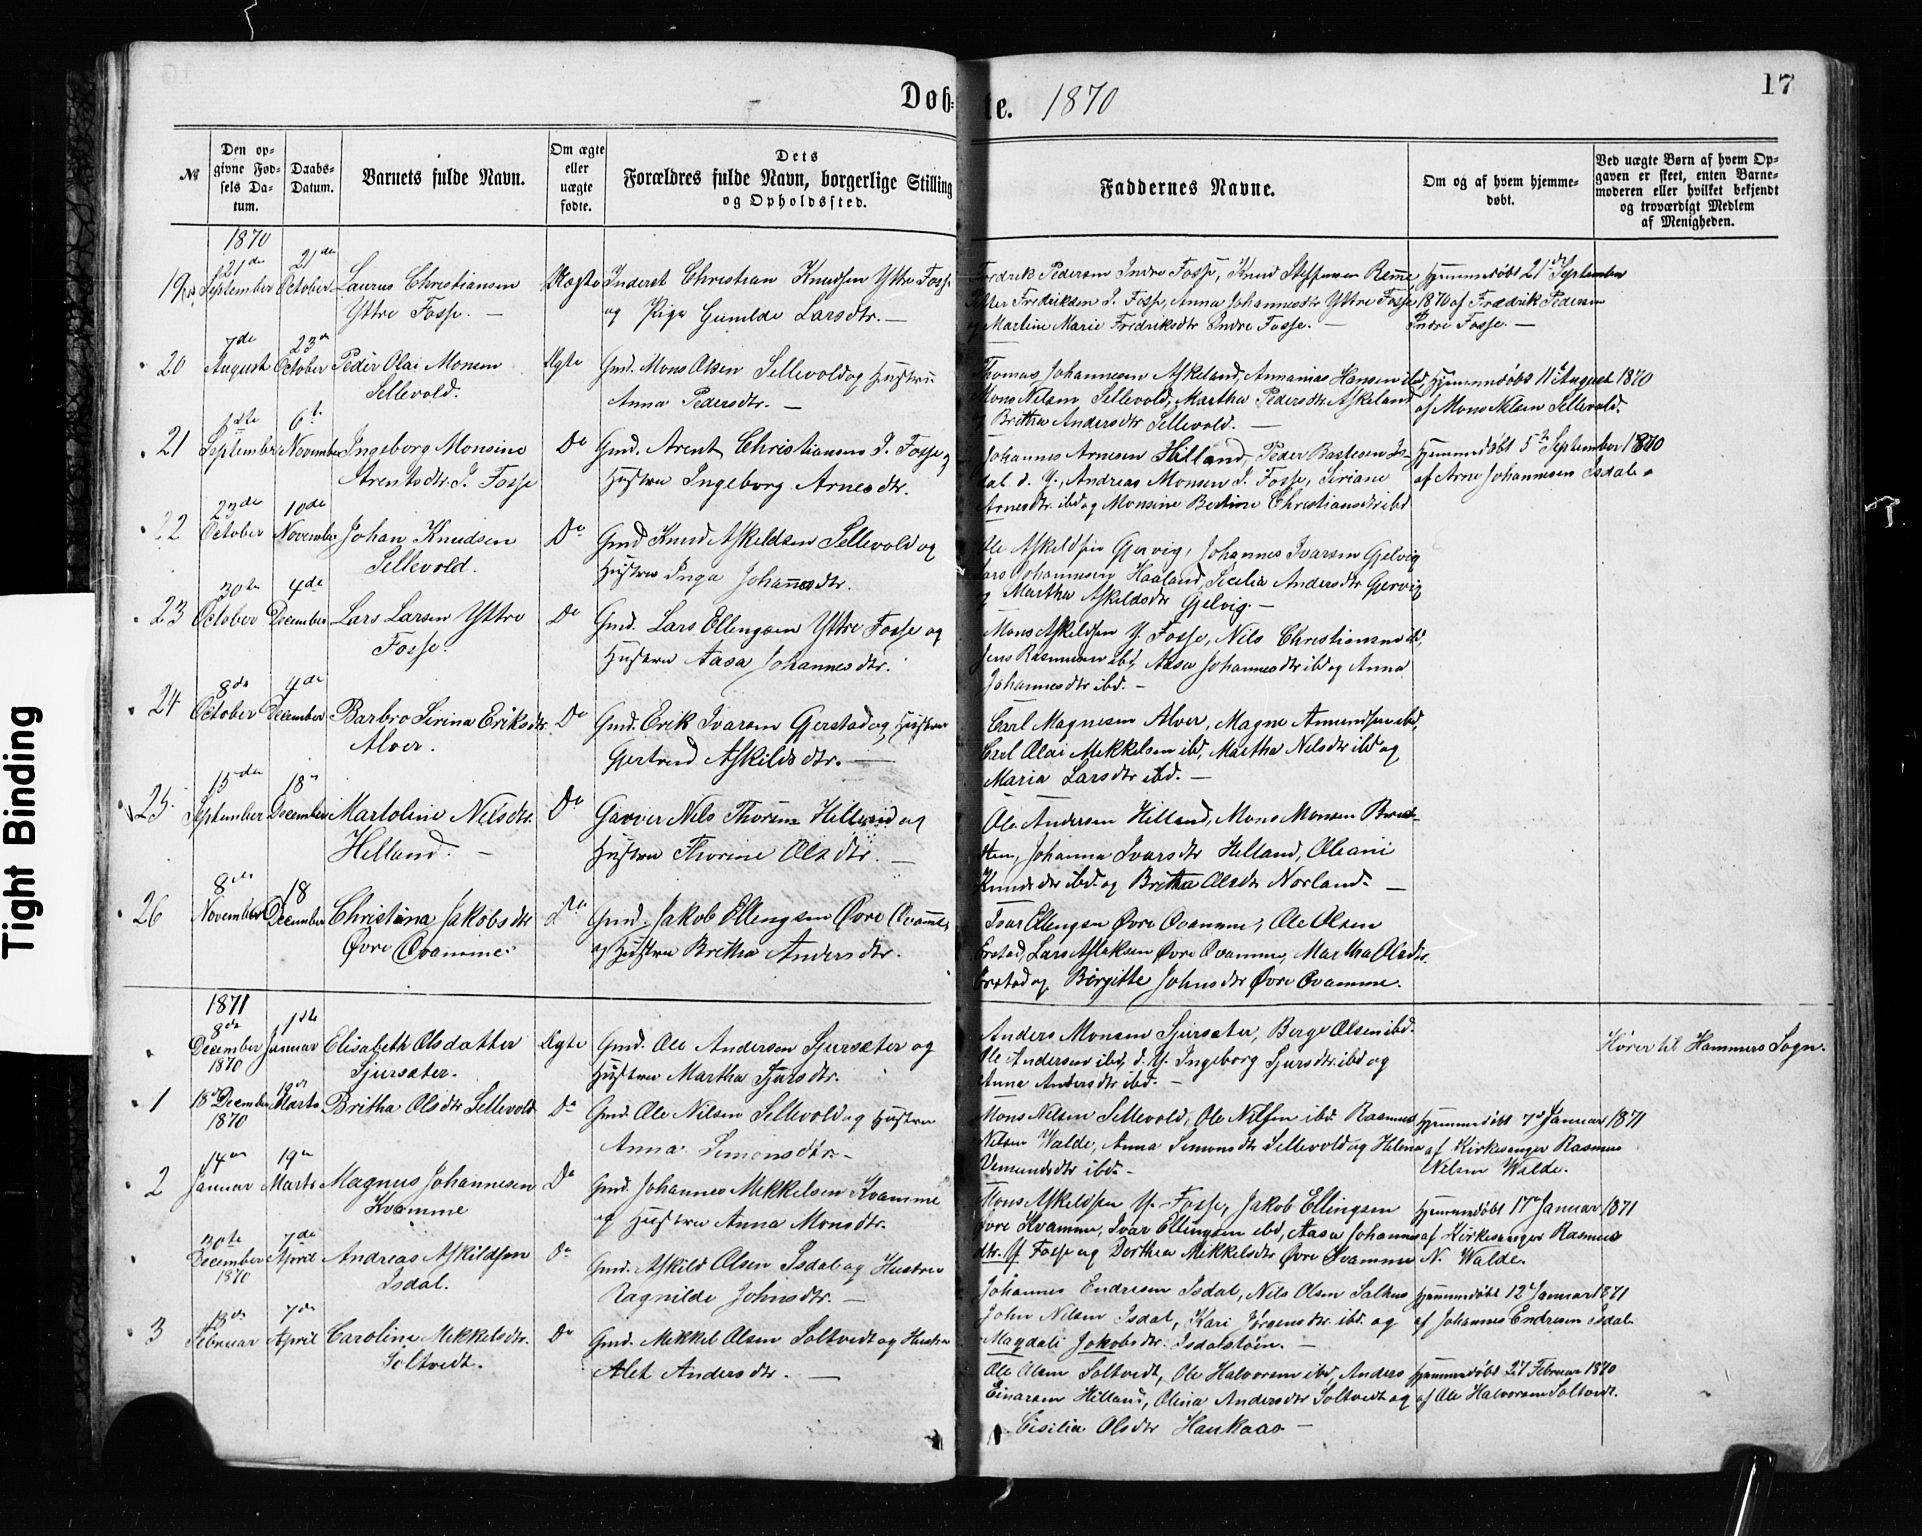 Døb-
te. 1870
17
Tight Binding
№
Den op-
givne Fød-
sels Da-
tum.
Daabs-
Datum.
Barnets fulde Navn.
Om ægte
eller
uægte
fødte.
Dets
Forældres fulde Navn, borgerlige Stilling
og Opholdssted.
Faddernes Navne.
Om og af hvem hjemme-
døbt.
Ved uægte Børn af hvem Op-
gaven er skeet, enten Barne-
moderen eller hvilket bekjendt
og troværdigt Medlem
af Menigheden.
1870
19
21de September
21de October
Laurus Christiansen
Yttre Fosse. —
Uægte
Inderst Christian Knudsen Yttre Fosse
og Pige Gunilde Larsdtr. —
Fredrik Pedersen Indre Fosse, Knud Steffensen Remme
Petter Fredriksen I. Fosse, Anna Johannesdtr Yttre Fosse
og Martine Marie Fredriksdtr Indre Fosse. —
Hjemmedøbt 21de September
1870 af Fredrik Pedersen
Indre Fosse. —
20
7de August
23de October
Peder Olai Monsen
Sellevold.
Ægte
Gmd. Mons Olsen Sellevold og Hustru
Anna Pedersdtr. —
Thomas Johannesen Askeland, Annanias Hansen ibd,
Mons Nilsen Sellevold, Martha Pedersdtr Askeland
og Britha Andersdtr Sellevold. —
Hjemmedøbt 11te August 1870
af Mons Nilsen Sellevold.
21
September
6te November
Ingeborg Monsine
Arentsdtr I. Fosse
Do
Gmd. Arent Christiansen I. Fosse og
Hustru Ingeborg Arnesdtr.
Johannes Arnesen Hilland, Peder Bastesen Is-
dal d. Y., Andreas Monsen I. Fosse, Siriane
Arnesdtr ibd og Monsine Bertine Christiansdtr ibd
Hjemmedøbt 5te September 1870
af Arne Johannesen Isdal.
22
23de October
10de November
Johan Knudsen
Sellevold.
Do
Gmd Knud Askeldsen Sellevold og
Hustru Inga Johannesdtr.
Ole Askildsen Gjervig, Johannes Ivarsen Gjelvig
Lars Johannesen Haaland, Sicelia Andersdtr Gjervig
og Martha Askildsdtr Gjelvig. —
23
30te October
4de December
Lars Larsen Yttre
Fosse.
Do
Gmd. Lars Ellingsen Yttre Fosse og
Hustru Aasa Johannesdtr.
Mons Askildsen Y. Fosse, Nils Christiansen ibd
Jens Rasmussen ibd, Aasa Johannesdtr ibd og Anna
Johannesdtr ibd. —
24
8de October
4de December
Barbro Sirina Eriksdtr
Alver.
Do
Gmd. Erik Ivarsen Gjerstad og Hustru
Gjertrud Askildsdtr. —
Carl Magnesen Alver, Magne Amundsen ibd,
Carl Olai Mikkelsen ibd, Martha Nilsdtr ibd og
Maria Larsdtr ibd. —
25.
15de September
18de December
Martoline Nilsdtr.
Helland. —
Do
Garver Nils Thorsen Hilland og
Hustru Thorine Olsdtr. —
Ole Andersen Hilland, Mons Monsen
Johanna Ivarsdtr Helland, Oleani
Knudsdtr ibd. og Britha Olsdtr Norland. —
26
8de November
18 December
Christina Jakobsdtr
Øvre Qvamme.
Do
Gmd. Jakob Ellingsen Øvre Qvamme
og Hustru Britha Andersdtr.
Ivar Ellingsen Øvre Qvamme, Ole Olsen
Lars Aslaksen Øvre Qvamme, Martha Olsdtr.
og Birgitte Johnsdtr Øvre Qvamme.
1871
8de December 1870
1ste Januar
Elisabeth Olsdatter
Sjursæter.
Ægte
Gmd. Ole Andersen Sjursæter og
Hustru Martha Sjursdtr.
Anders Monsen Sjursæter, Berge Olsen ibd.
Ole Andersen ibd, d. Y. Ingeborg Sjursdtr ibd og
Anna Andersdtr ibd. —
Hører til Hammers Sogn.
1
18de December 1870
19de Marts
Britha Olsdtr Sellevold
Do
Gmd. Ole Nilsen Sellevold og Hustru
Anna Simonsdtr. —
Mons Nilsen Sellevold, Ole Nilsen ibd. Rasmus
Nilsen Walde, Anna Simonsdtr Sellevold og Helena
Vemundsdtr ibd. —
Hjemmedøbt 7de Januar 1871
af Kirkesanger Rasmus
Nilsen Walde.
2
14de Januar
19de Marts
Magnus Johannesen
Kvamme
Do
Gmd. Johannes Mikkelsen Kvamme
og Hustru Anna Monsdtr.
Mons Askildsen Y. Fosse, Jakob Ellingsen
Øvre Kvamme, Ivar Ellingsen ibd, Aasa Johannes-
dtr. Y. Fosse og Dorthea Mikkelsdtr Øvre Kvamme
Hjemmedøbt 17de Januar 1871
af Kirkesanger Rasmus
N. Walde.
30te December 1870
7de April
Andreas Askildsen
Isdal.
Do
Gmd. Askild Olsen Isdal og Hustru
Ragnilde Johnsdtr. —
Johannes Endresen Isdal, Nils Olsen Salhus
John Nilsen Isdal, Kari Jørgensdtr ibd. og
Magdali Jakobsdtr. Isdalstøen. —
Hjemmedøbt 12te Januar 1871
af Johannes Endresen Isdal
3
18de Februar
7de April
Caroline Mikkelsdtr.
Soltvedt.
Do
Gmd. Mikkel Olsen Soltvedt og Hustru
Alet Andersdtr. —
Ole Olsen Soltvedt, Ole Halvorsen ibd, Anders
Einarsen Hilland, Olina Andersdtr Soltvedt og
Cisilia Olsdtr Haukaas —
Hjemmedøbt 27 Februar 1870
af Ole Halvorsen Soltvedt.